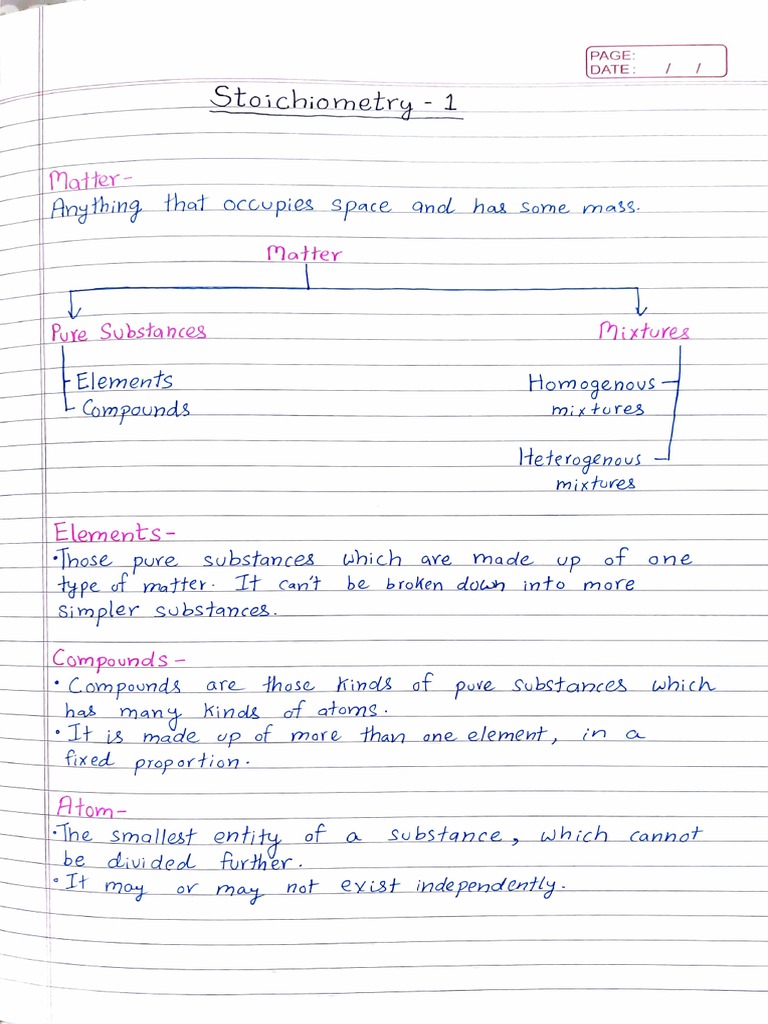 PAGE:
DATE: / /
Stoichiometry - 1
Matter-
Anything that occupies space and has some mass.
Matter
Pure Substances
Mixtures
Elements
Compounds
Homogenous
mixtures
Heterogenous
mixtures
Elements-
•Those pure substances which are made up of one
type of matter. It can't be broken down into more
simpler substances.
Compounds-
• Compounds are those kinds of pure substances which
has many kinds of atoms.
• It is made up of more than one element, in a
fixed proportion.
Atom-
•The smallest entity of a substance, which cannot
be divided further.
• It may or may not exist independently.